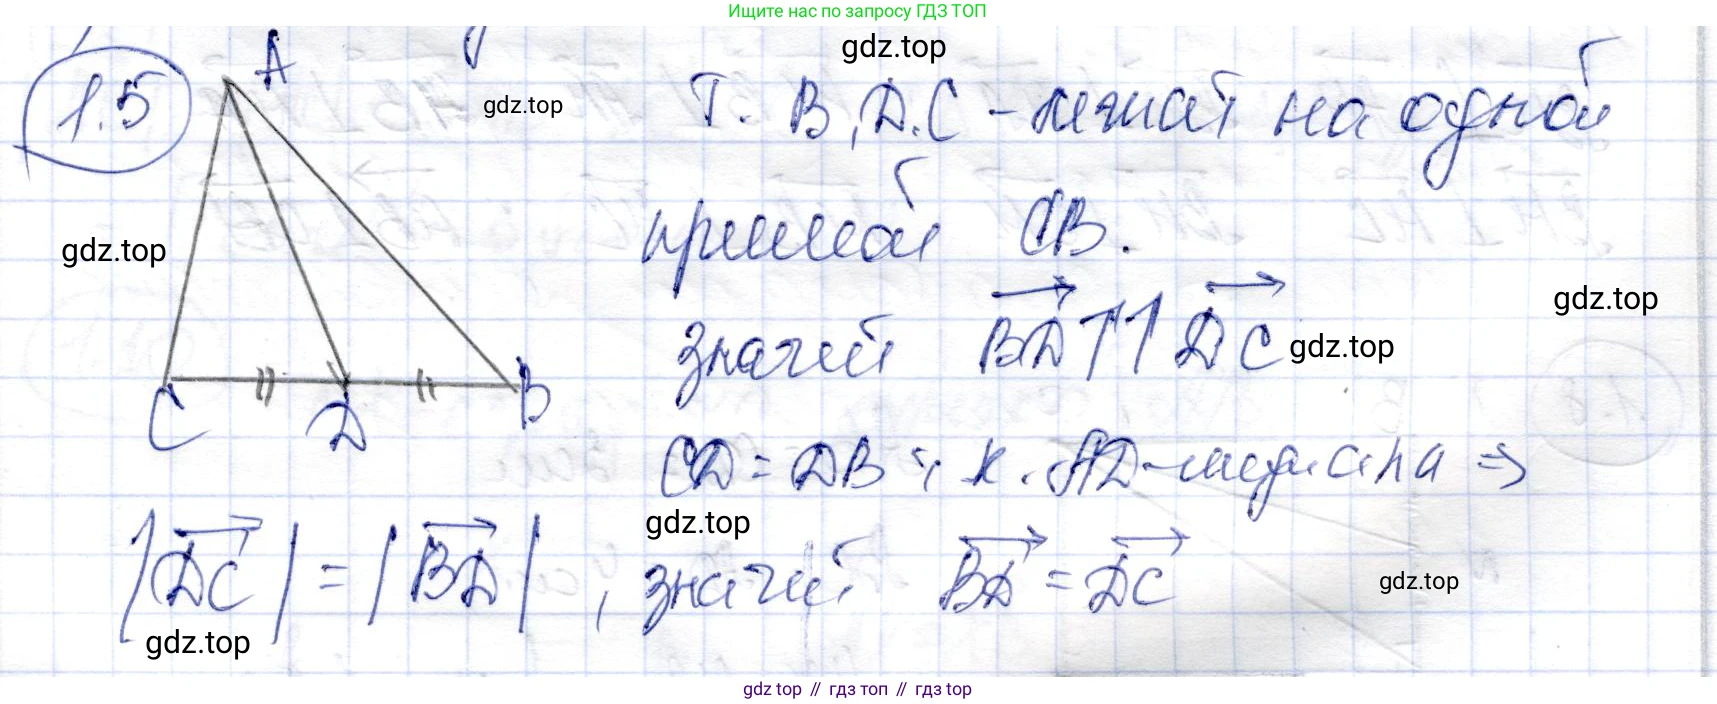 Ищите нас по запросу ГДЗ ТОП
1.5
A
gdz.top
gdz.top
Т. B, D, C - лежат на одной
gdz.top
прямой CB.
gdz.top
значит $\overrightarrow{BD}$ ↑↑ $\overrightarrow{DC}$
gdz.top
C D B
CD = DB т.к. AD - медиана ⇒
gdz.top
|$\overrightarrow{DC}$| = |$\overrightarrow{BD}$|, значит $\overrightarrow{BD}$ = $\overrightarrow{DC}$
gdz.top
gdz.top
gdz top // гдз топ // gdz top